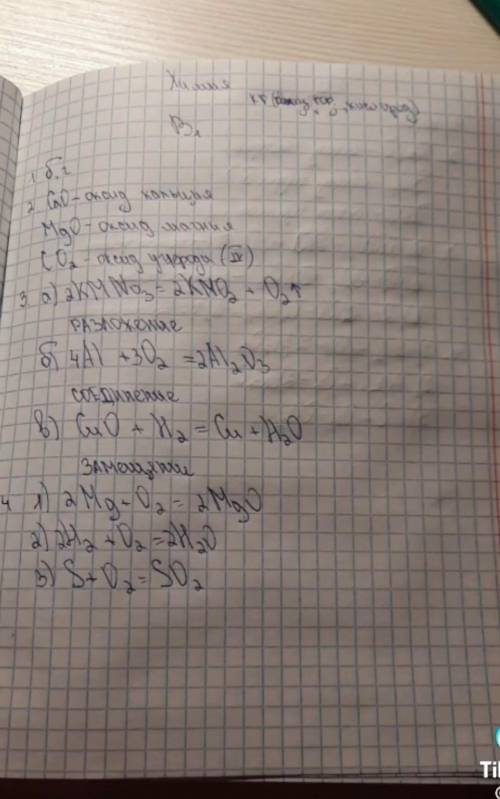 Химия
кислород)
В1
1. б, г
2. CaO - оксид кальция
MgO - оксид магния
CO2 - оксид углерода (IV)
3. а) 2KNO3 = 2KNO2 + O2↑
РАЗЛОЖЕНИЕ
б) 4Al + 3O2 = 2Al2O3
СОЕДИНЕНИЕ
в) CuO + H2 = Cu + H2O
ЗАМЕЩЕНИЕ
4 1) 2Mg + O2 = 2MgO
2) 2H2 + O2 = 2H2O
3) S + O2 = SO2